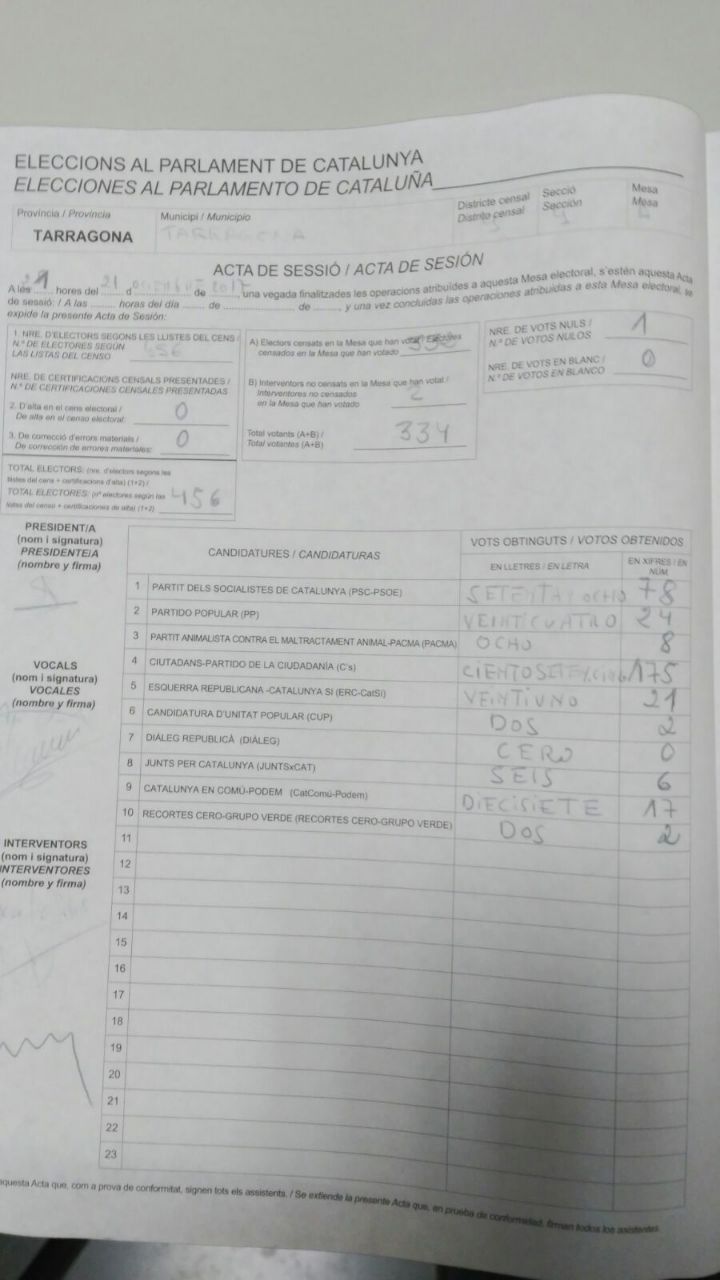 ELECCIONS AL PARLAMENT DE CATALUNYA
ELECCIONES AL PARLAMENTO DE CATALUÑA
Província / Provincia
TARRAGONA
Municipi / Municipio
TARRAGONA
Districte censal
Distrito censal
Secció
Sección
Mesa
Mesa
ACTA DE SESSIÓ / ACTA DE SESIÓN
A les 21 hores del 21 d DICIEMBRE de 2017, una vegada finalitzades les operacions atribuïdes a aquesta Mesa electoral, s'estén aquesta Acta
de sessió: / A las ........ horas del día ........ de ........ de ........, y una vez concluidas las operaciones atribuidas a esta Mesa electoral, se
expide la presente Acta de Sesión:
1. NRE. D'ELECTORS SEGONS LES LLISTES DEL CENS /
N.º DE ELECTORES SEGÚN
LAS LISTAS DEL CENSO 456
NRE. DE CERTIFICACIONS CENSALS PRESENTADES /
N.º DE CERTIFICACIONES CENSALES PRESENTADAS
2. D'alta en el cens electoral /
De alta en el censo electoral: 0
3. De correcció d'errors materials /
De corrección de errores materiales: 0
TOTAL ELECTORS: (nre. d'electors segons les
llistes del cens + certificacions d'alta) (1+2) /
TOTAL ELECTORES: (nº electores según las
listas del censo + certificaciones de alta) (1+2) 456
A) Electors censats en la Mesa que han votat / Electores
censados en la Mesa que han votado
B) Interventors no censats en la Mesa que han votat /
Interventores no censados
en la Mesa que han votado 2
Total votants (A+B) /
Total votantes (A+B) 334
NRE. DE VOTS NULS /
N.º DE VOTOS NULOS 1
NRE. DE VOTS EN BLANC /
N.º DE VOTOS EN BLANCO 0
PRESIDENT/A
(nom i signatura)
PRESIDENTE/A
(nombre y firma)
VOCALS
(nom i signatura)
VOCALES
(nombre y firma)
INTERVENTORS
(nom i signatura)
INTERVENTORES
(nombre y firma)
CANDIDATURES / CANDIDATURAS
VOTS OBTINGUTS / VOTOS OBTENIDOS
EN LLETRES / EN LETRA
EN XIFRES / EN NÚM.
1 PARTIT DELS SOCIALISTES DE CATALUNYA (PSC-PSOE) SETENTA Y OCHO 78
2 PARTIDO POPULAR (PP) VEINTICUATRO 24
3 PARTIT ANIMALISTA CONTRA EL MALTRACTAMENT ANIMAL-PACMA (PACMA) OCHO 8
4 CIUTADANS-PARTIDO DE LA CIUDADANÍA (C's) 175
5 ESQUERRA REPUBLICANA -CATALUNYA SÍ (ERC-CatSí) VEINTIUNO 21
6 CANDIDATURA D'UNITAT POPULAR (CUP) DOS 2
7 DIÀLEG REPUBLICÀ (DIÀLEG) CERO 0
8 JUNTS PER CATALUNYA (JUNTSxCAT) SEIS 6
9 CATALUNYA EN COMÚ-PODEM (CatComú-Podem) DIECISIETE 17
10 RECORTES CERO-GRUPO VERDE (RECORTES CERO-GRUPO VERDE) DOS 2
11
12
13
14
15
16
17
18
19
20
21
22
23
aquesta Acta que, com a prova de conformitat, signen tots els assistents. / Se extiende la presente Acta que, en prueba de conformidad, firman todos los asistentes.